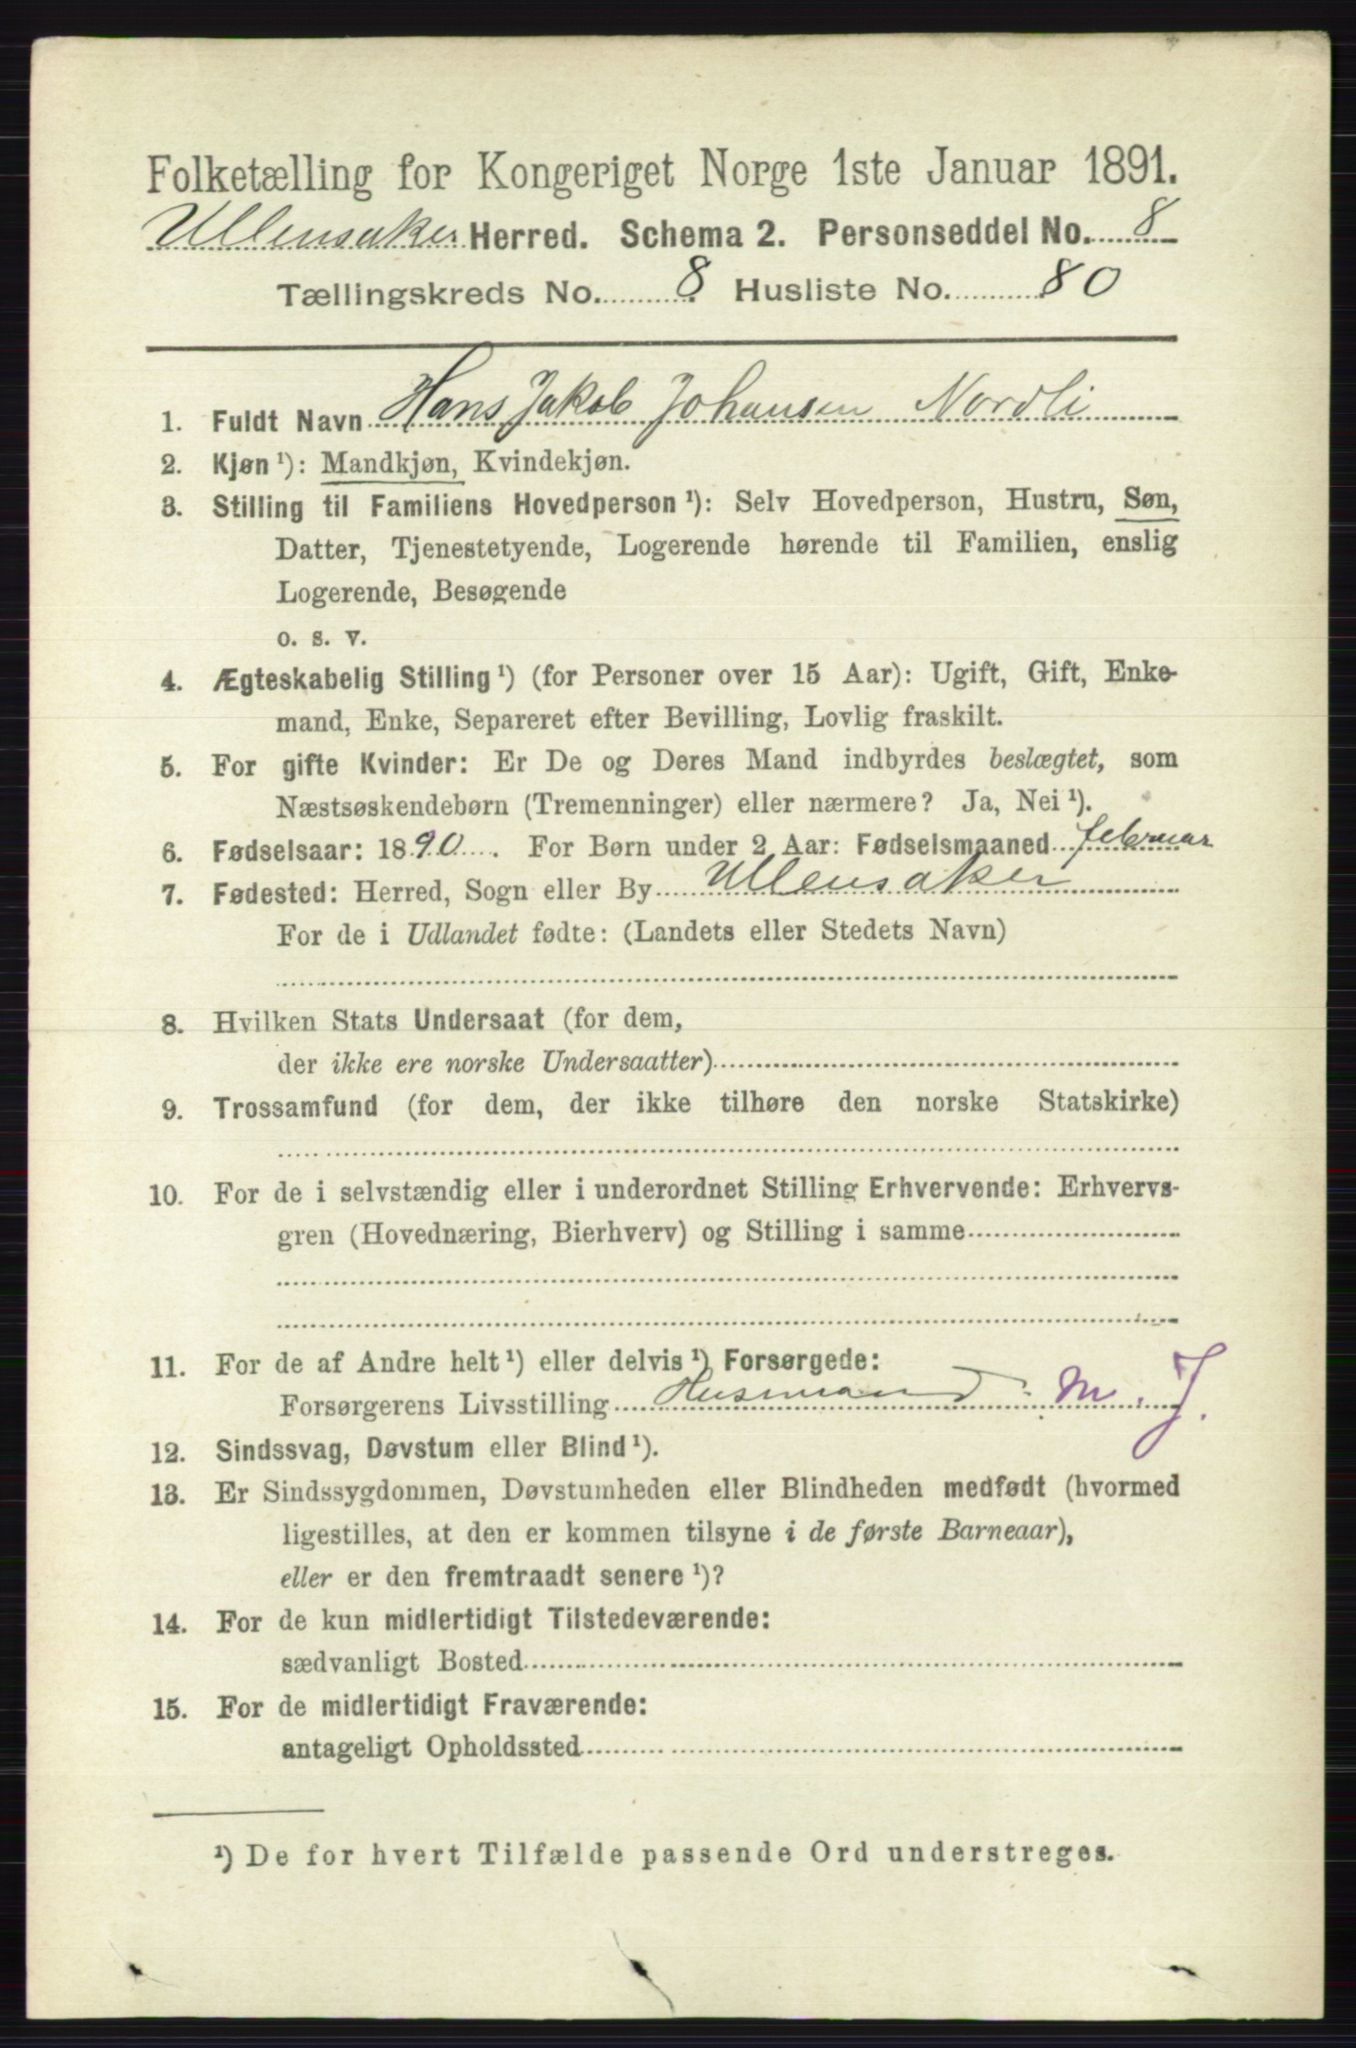 Folketælling for Kongeriget Norge 1ste Januar 1891.
Ullensaker Herred. Schema 2. Personseddel No. 8
Tællingskreds No. 8 Husliste No. 80
1. Fuldt Navn Hans Jakob Johansen Nordli
2. Kjøn ¹): Mandkjøn, Kvindekjøn.
3. Stilling til Familiens Hovedperson ¹): Selv Hovedperson, Hustru, Søn,
Datter, Tjenestetyende, Logerende hørende til Familien, enslig
Logerende, Besøgende
o. s. v.
4. Ægteskabelig Stilling ¹) (for Personer over 15 Aar): Ugift, Gift, Enke-
mand, Enke, Separeret efter Bevilling, Lovlig fraskilt.
5. For gifte Kvinder: Er De og Deres Mand indbyrdes beslægtet, som
Næstsøskendebørn (Tremenninger) eller nærmere? Ja, Nei ¹).
6. Fødselsaar: 1890. For Børn under 2 Aar: Fødselsmaaned februar
7. Fødested: Herred, Sogn eller By Ullensaker
For de i Udlandet fødte: (Landets eller Stedets Navn)
8. Hvilken Stats Undersaat (for dem,
der ikke ere norske Undersaatter)
9. Trossamfund (for dem, der ikke tilhøre den norske Statskirke)
10. For de i selvstændig eller i underordnet Stilling Erhvervende: Erhvervs-
gren (Hovednæring, Bierhverv) og Stilling i samme
11. For de af Andre helt ¹) eller delvis ¹) Forsørgede:
Forsørgerens Livsstilling Husmand m. J.
12. Sindssvag, Døvstum eller Blind ¹).
13. Er Sindssygdommen, Døvstumheden eller Blindheden medfødt (hvormed
ligestilles, at den er kommen tilsyne i de første Barneaar),
eller er den fremtraadt senere ¹)?
14. For de kun midlertidigt Tilstedeværende:
sædvanligt Bosted
15. For de midlertidigt Fraværende:
antageligt Opholdssted
¹) De for hvert Tilfælde passende Ord understreges.